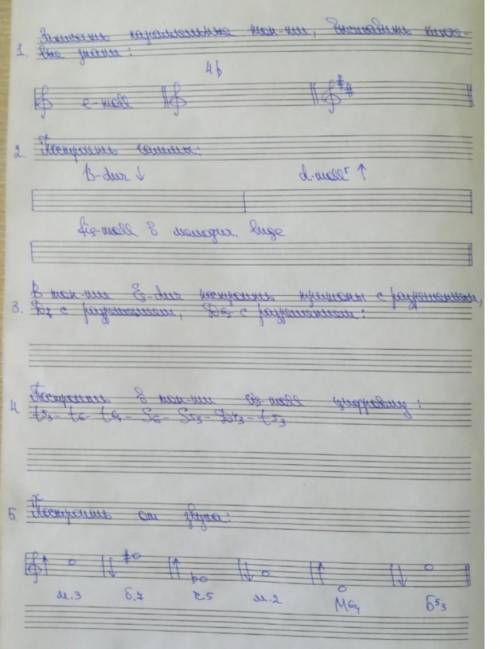 1. Записать параллельные тон-ти, выставить ключе-
вые знаки:
4♭
e-moll
2. Построить гаммы:
B-dur ↓ d-mollг ↑
fis-moll в мелодич. виде
3. В тон-ти Es-dur построить тритоны с разрешением,
D7 с разрешением, с разрешением:
4. Построить в тон-ти цифровку:
t53 - t6 - t64 - S6 - S53 - - t53
5 Построить от звука:
м.3 б.7 ч.5 м.2 М64 Б53